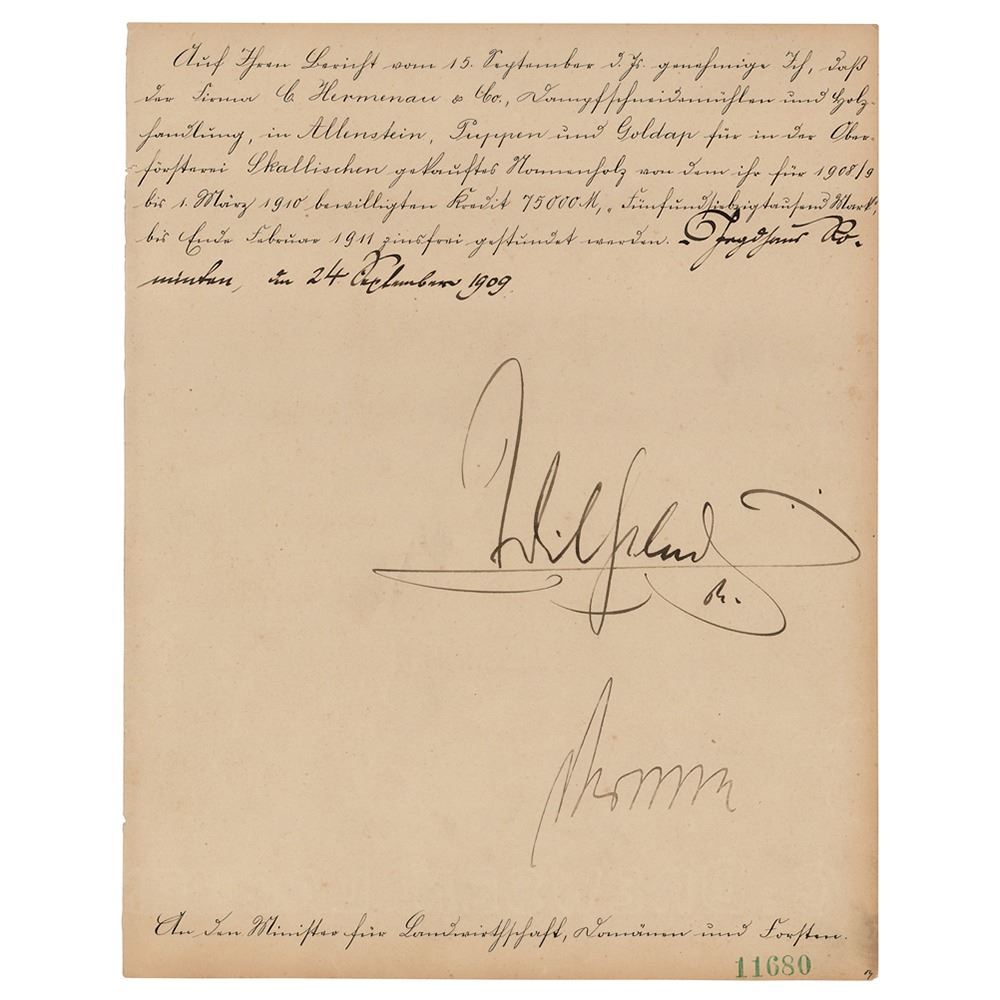 Auf Ihren Bericht vom 15. September d. Js. genehmige Ich, daß
der Firma C. Hermenau & Co., Dampfschneidemühlen und Holz-
handlung, in Allenstein, Puppen und Goldap für in der Ober-
försterei Skallischen gekauftes Nonnenholz von dem ihr für 1908/9
bis 1. März 1910 bewilligten Kredit 75000 M, „Fünfundsiebzigtausend Mark",
bis Ende Februar 1911 zinsfrei gestundet werden. Jagdhaus Ro-
minten, den 24 September 1909
Wilhelm
R.
An den Minister für Landwirthschaft, Domänen und Forsten.
11680